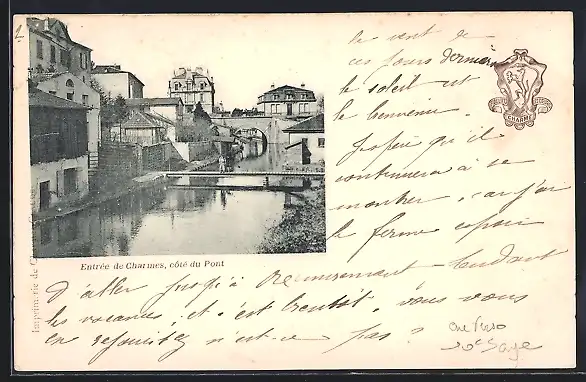 le vent de
ces jours derniers
le soleil est
le bienvenu.
J'espère qu'il
continuera à se
montrer, car j'ai
le ferme espoir
CHARMES
Entrée de Charmes, côté du Pont
Imprimerie de C
d'aller jusqu'à Remiremont pendant
les vacances, et c'est bientôt, vous vous
en réjouissez n'est-ce pas?